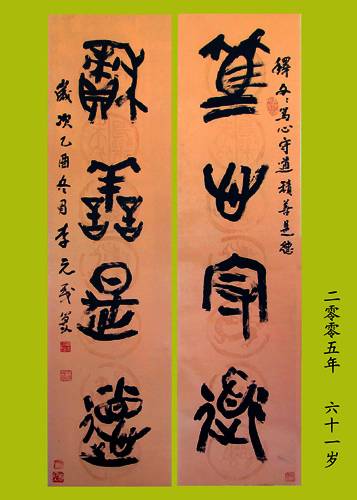 釋文：笃心守道積善是德
篤心守道
積善是德
歲次乙酉冬月李元
二零零五年 六十一岁